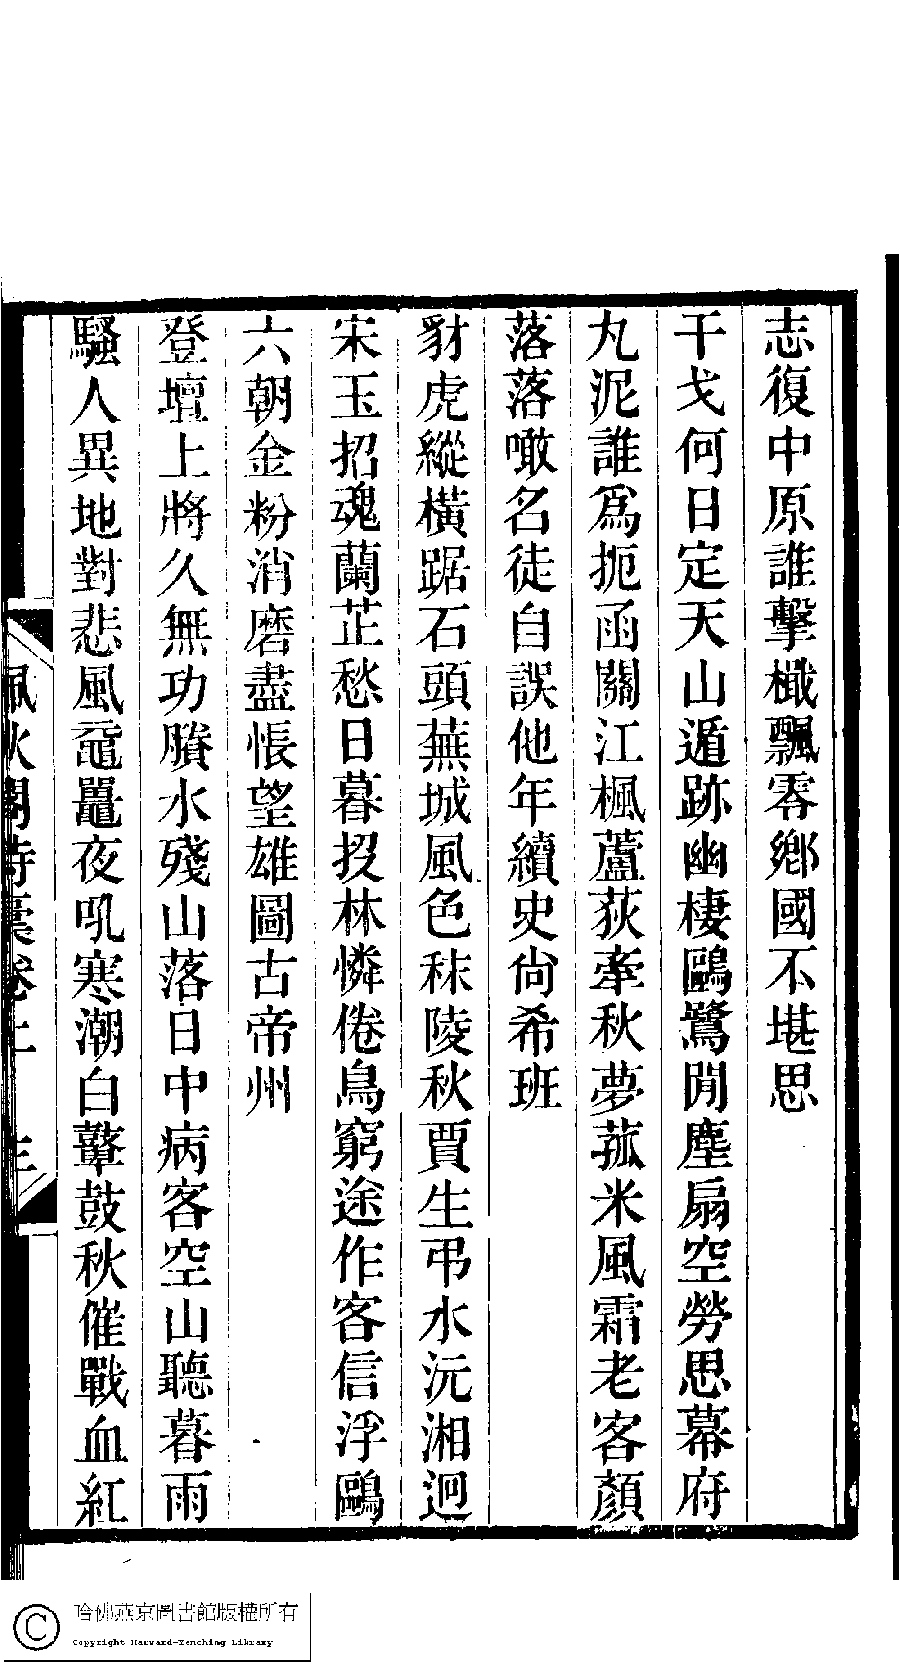 志復中原誰擊檝飄零鄉國不堪思
干戈何日定天山遁跡幽棲鷗鷺閒塵扇空勞思幕府
丸泥誰爲扼函關江楓蘆荻牽秋夢菰米風霜老客顏
落落噉名徒自誤他年續史尙希班
豺虎縱橫踞石頭蕪城風色秣陵秋賈生弔水沅湘迥
宋玉招魂蘭芷愁日暮投林憐倦鳥窮途作客信浮鷗
六朝金粉消磨盡悵望雄圖古帝州
登壇上將久無功賸水殘山落日中病客空山聽暮雨
騷人異地對悲風黿鼉夜吼寒潮白鼙鼓秋催戰血紅
秋閣詩稾卷上
哈佛燕京圖書館版權所有
Copyright Harvard-Yenching Library